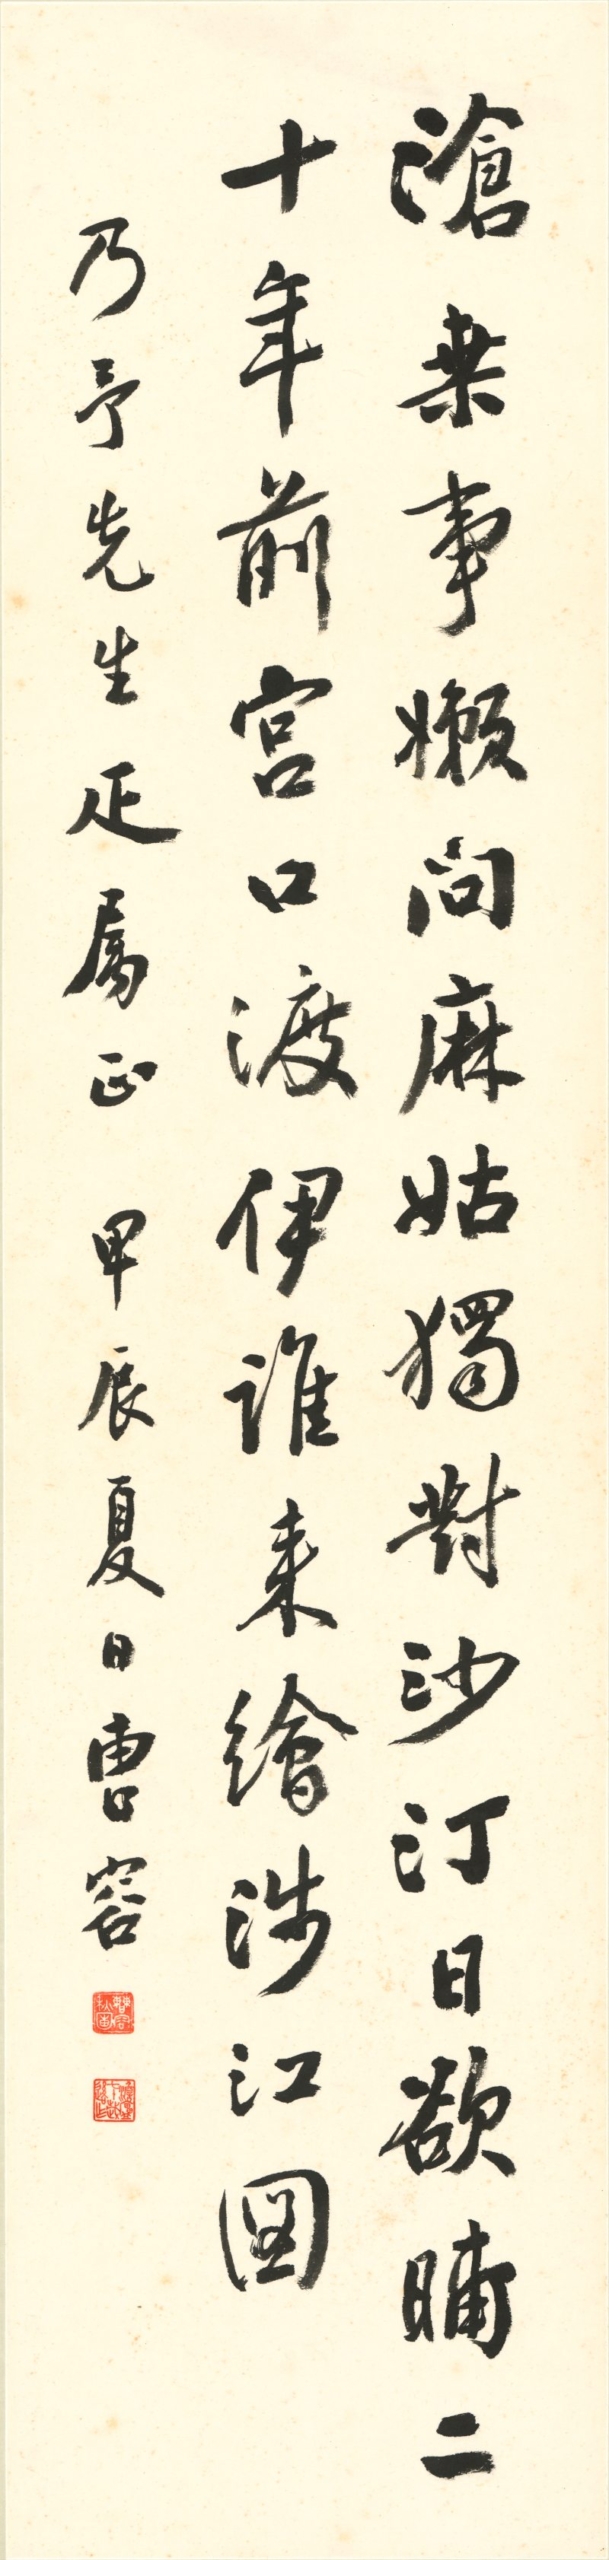 滄桒事嬾問麻姑獨對沙汀日欲晡二
十年前宮口渡伊誰来繪涉江圖
乃予先生疋屬正 甲辰夏日曹容